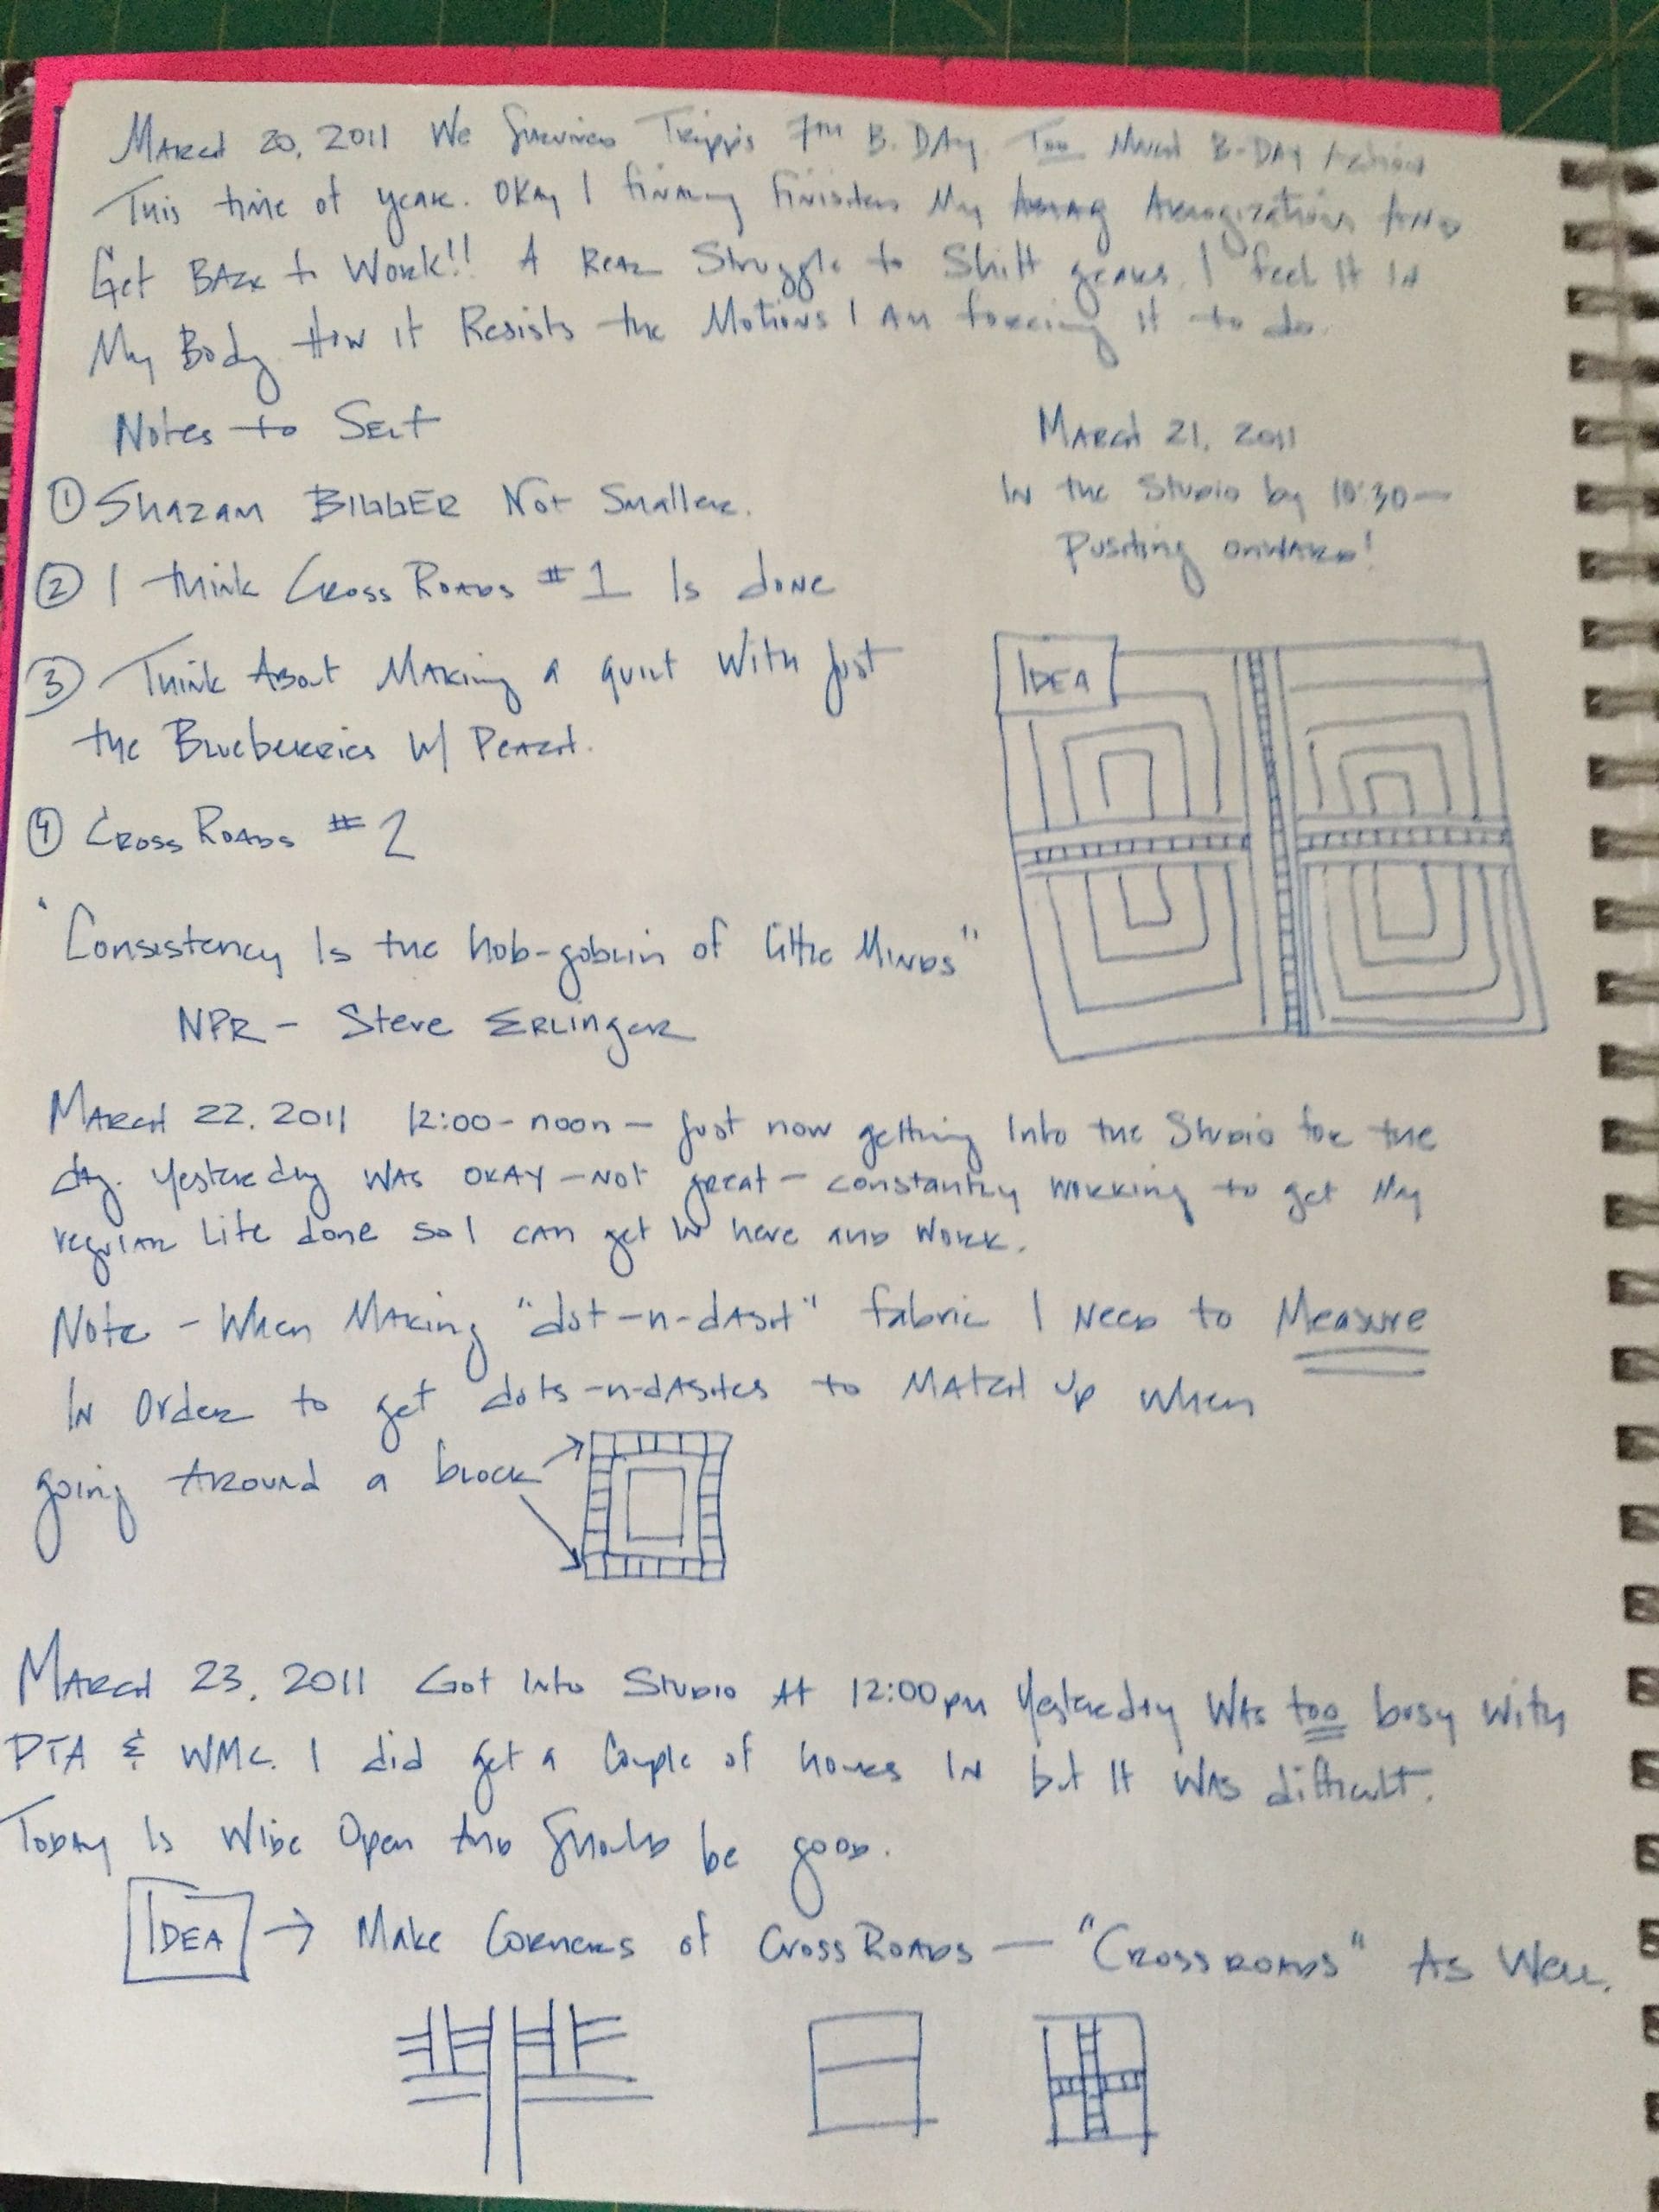 March 20, 2011 We Survived Tripp's 7th B.Day. Too Much B-Day Action
This time of year. Okay I finally finished My and
Get Back to Work!! A Real Struggle to Shift gears. I feel It In
My Body How it Resists the Motions I Am forcing it to do.
Notes to Self
① Shazam BIGGER Not Smaller.
② I think Cross Roads #1 Is done
③ Think About Making a quilt With Just
the Blueberries w/ Peach.
④ Cross Roads #2
"Consistency Is the hob-goblin of little Minds"
NPR - Steve Erlinger
March 21, 2011
In the Studio by 10:30 —
Pushing onward!
IDEA
March 22, 2011 12:00 - noon — Just now getting Into the Studio for the
day. Yesterday was okay — not great — constantly working to get My
regular Life done so I can get in here and Work.
Note - When Making "dot-n-dash" fabric I Need to Measure
In Order to get dots-n-dashes to Match up when
going Around a block
March 23, 2011 Got Into Studio At 12:00pm Yesterday Was too busy with
PTA & WMC. I did get a Couple of hours In but It was difficult.
Today Is Wide Open And Should be good.
IDEA → Make Corners of CrossRoads — "Crossroads" As Well.